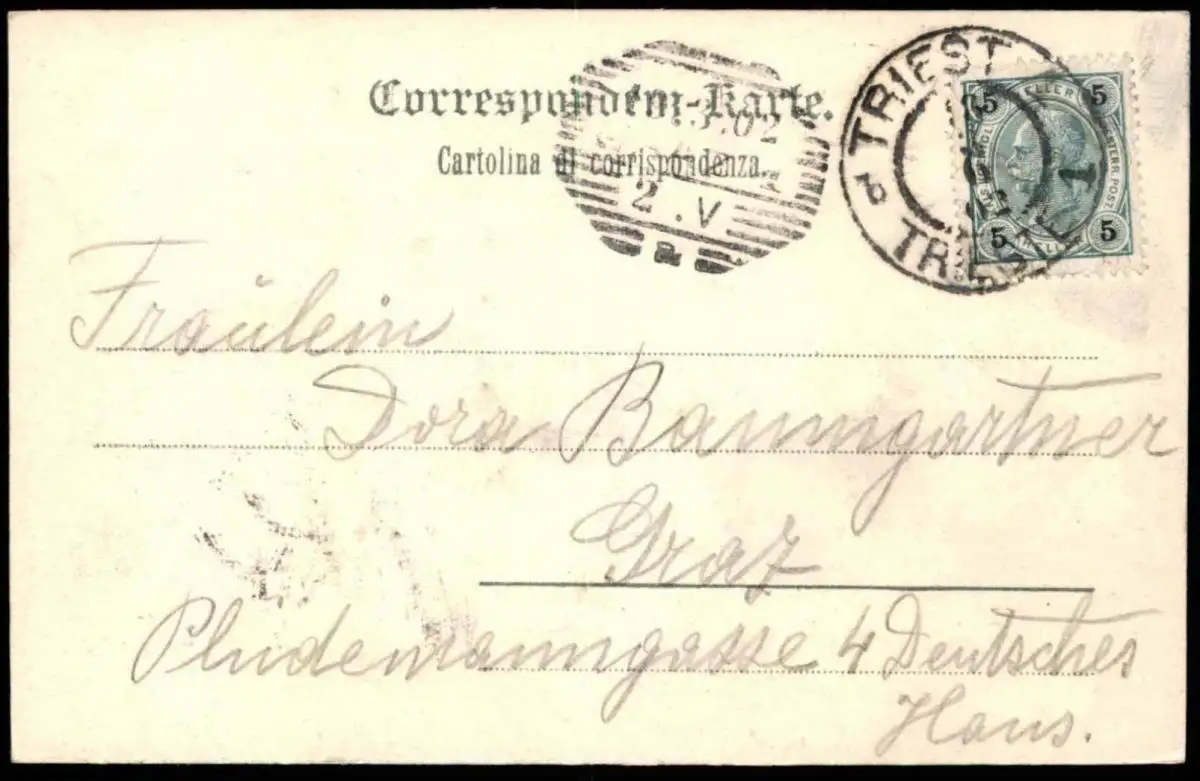 Correspondenz-Karte.
Cartolina di corrispondenza.
3.02
2.V
TRIEST
TRIEST 1
5 HELLER 5
ÖSTERR. POST
5 HELLER 5
Fräulein
Dora Baumgartner
Graz
Plüdemanngasse 4 Deutsches
Haus.